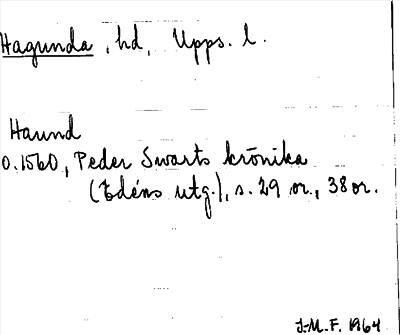 Hagunda, hd, Upps. l.
Haund
o.1560, Peder Swarts krönika
(Edéns utg.), s. 29 or., 38 or.
J.M.F. 1964